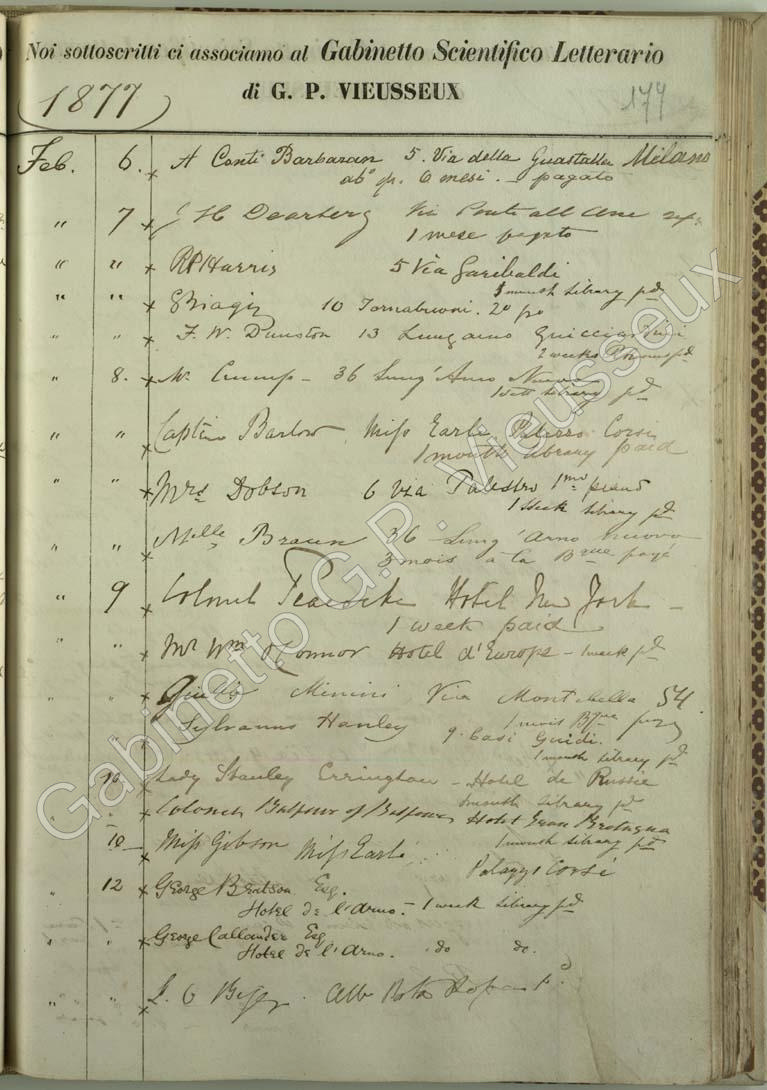 Noi sottoscritti ci associamo al Gabinetto Scientifico Letterario
di G. P. VIEUSSEUX
1877
177
Feb. 6. x A Conti Barbaran 5. Via della Guastalla Milano
ab° p. 6 mesi. pagato
" 7 x J H Dearberg Via
1 mese pagato
" " x RP Harris 5 Via Garibaldi
1 month Library pd
" " x G Biagi 10 Tornabuoni. 2°
" " x F. W. Dunston 13 Lungarno Guicciardini
2 weeks pd
" 8. x Mr Crump - 36 Lung' Arno Nuovo
Library pd
" " x Captain Barlow Miss Earle Palazzo Corsi
1 month Library paid
" " x Mrs Dobson 6 Via Palestro 1mo piano
1 Week Library pd
" " x Melle Braun 36 - Lung' Arno nuovo
3 mois à la Bque payé
" 9 x Colonel Peacocke Hotel New York -
1 week paid
" " x Mr Wm O'Connor Hotel d'Europe - 1 week pd
" " x Giulio Minini Via Montebello 54.
1 mois Bque
" " x Sylvanus Hanley 9. Casi Guidi.
1 month Library pd
" 10 x Lady Stanley Errington - Hotel de Russie
month Library pd
" " x Colonel Balfour of Balfour Hotel Gran Bretagna
1 month Library pd
10 x Miss Gibson Miss Earle Palazzo Corsi
" 12 x George Bertson Esq.
Hotel de l'Arno. - 1 week Library pd
" " x George Callander Esq
Hotel de l'Arno. do do.
" " x